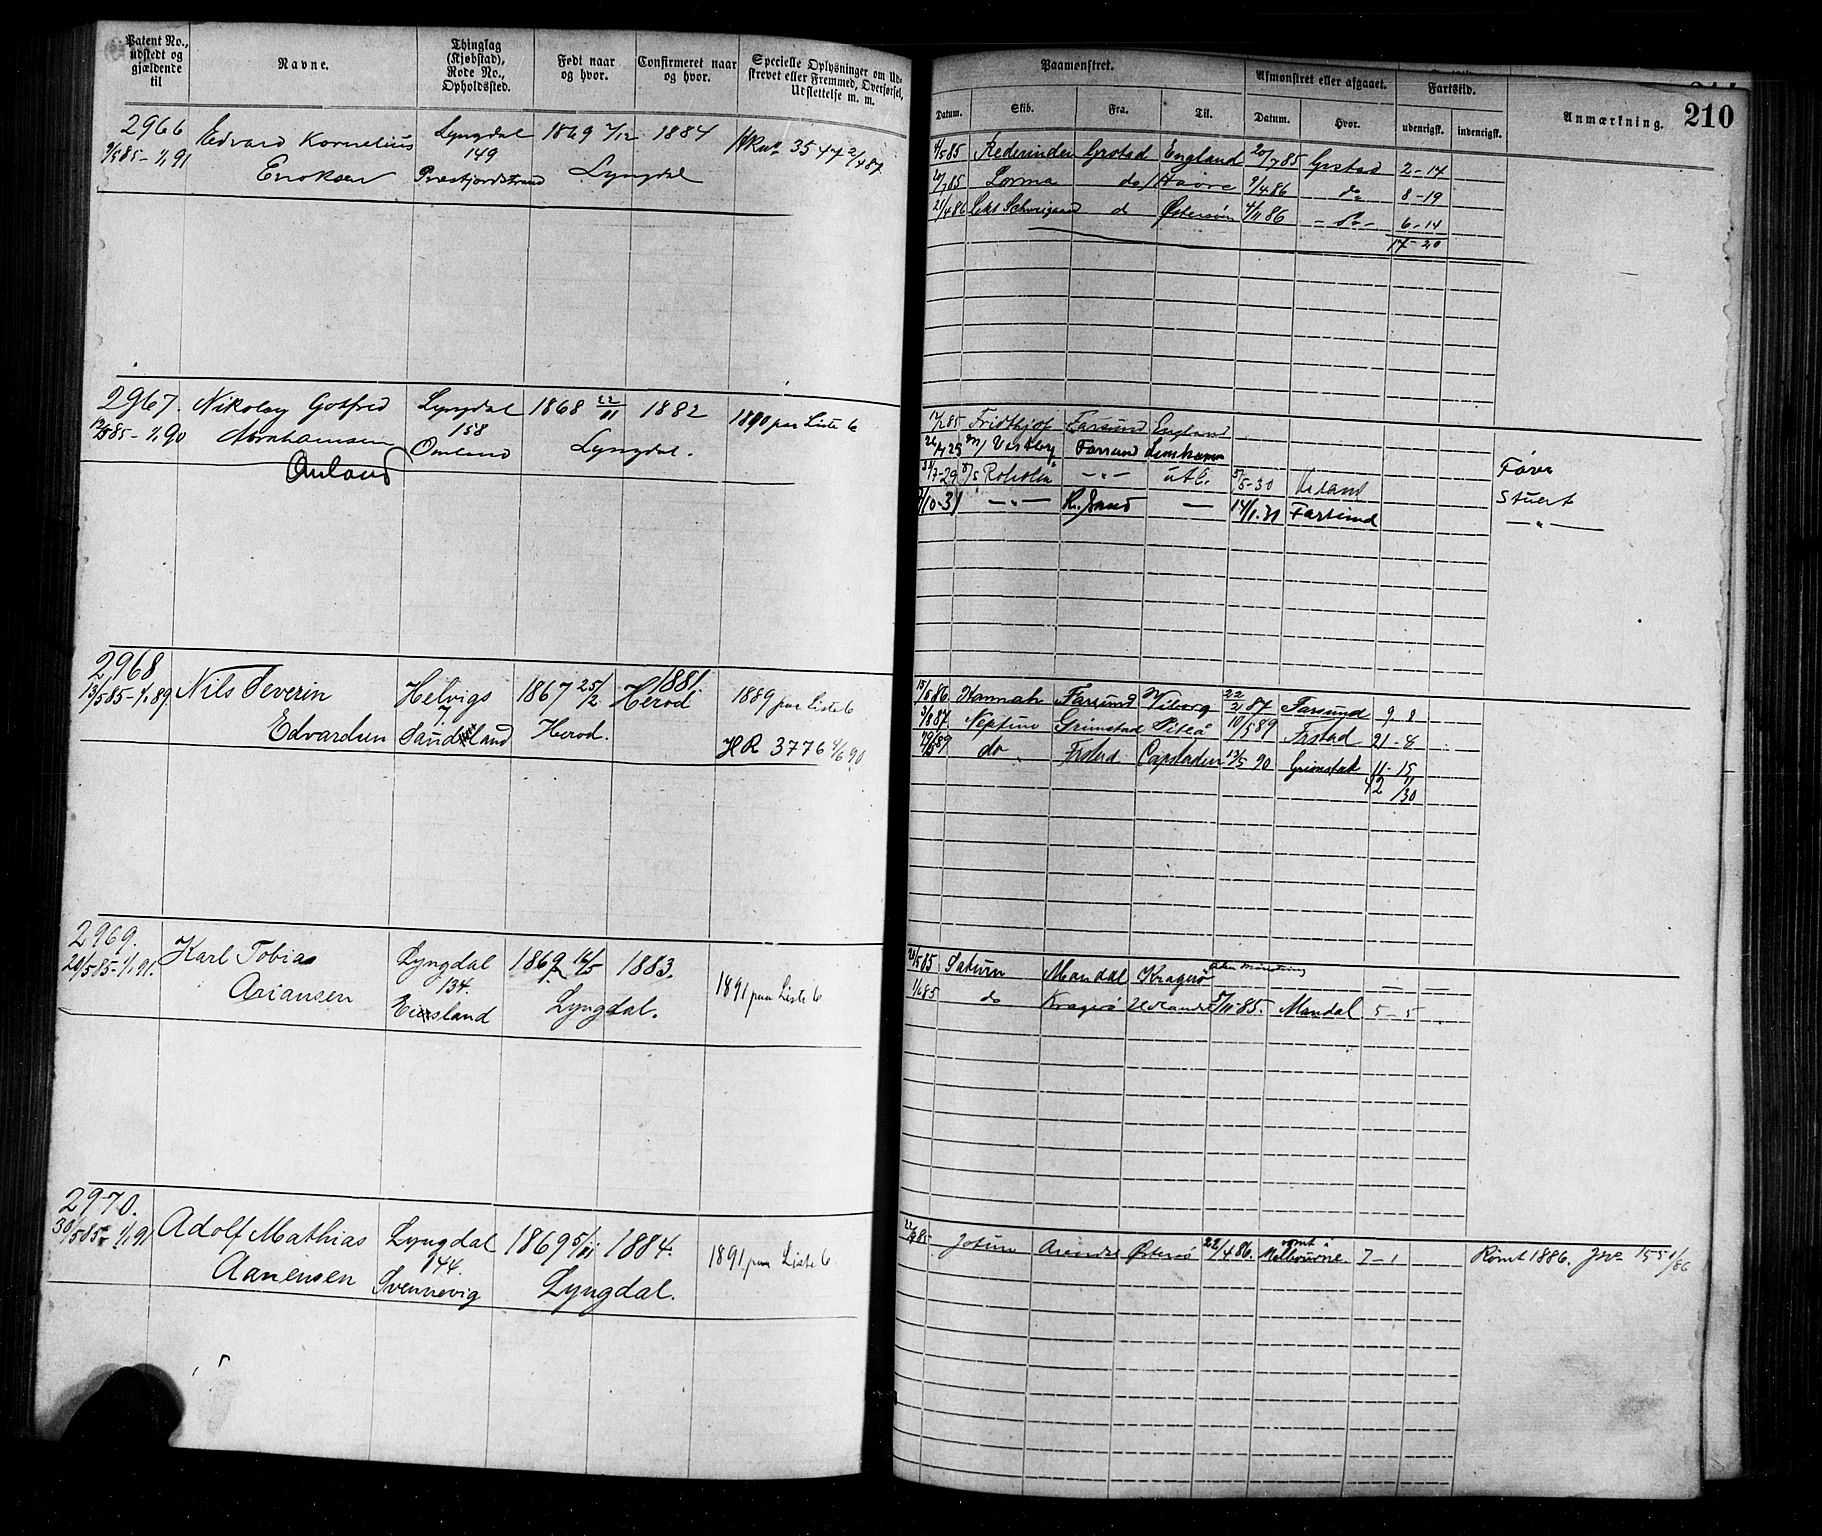 Patent No., udstedt og gjældende til
Navne.
Thinglag (Kjøbstad), Rode No., Opholdssted.
Født naar og hvor.
Confirmeret naar og hvor.
Specielle Oplysninger om Udskrevet eller Fremmed, Overførsel, Udslettelse m. m.
Paamønstret.
Afmønstret eller afgaaet.
Fartstid.
Anmærkning.
210
Datum.
Skib.
Fra.
Til.
Datum.
Hvor.
udenrigsk.
indenrigsk.
2966
9/5 85 - 1/1 91
Edvard Kornelius
Enoksen
Lyngdal
149
1869
1884
Lyngdal
3547 2/4 87
4/5 85 Grstad England 20/7 85 Grstad 2-14
20/7 85 Lorma do Havre 9/4 86 do 8-19
21/4 86 Schweigaard d Østersøen 4/11 86 - do - 6-14
17-20
2967.
12/5 85 - 1/1 90
Nikolay Gotfred
Abrahamsen
Omland
Lyngdal
158
Omland
1868 22/11
1882
Lyngdal.
1890 paa Liste 6
Fridthjof Farsund England
Farsund
29 D/S - " - utl. 5/5-30
10-31 - " - Kr.sand — 14/1.31 Farsund
Stuert
— " —
2968
13/5 85 - 1/1 89
Nils Severin
Edvardsen
Helvigs
7
Sandland
1867 25/2
1881.
Herod
Herod.
1889 paa Liste 6
HR 3776 4/6 90
15/5 86 Hannah Farsund Viborg 22/2 87 Farsund 9 8
3/5 87. Neptun Grimstad Piteå 10/5 89 Frstad 21-8
29/5 89 do Frstad Capstaden 13/5 90 Grimstad 11-15
42 1/30
2969.
20/5 85 - 1/1 91.
Karl Tobias
Ariansen
Lyngdal
134.
Eiersland
1869 16/5
1883.
Lyngdal.
1891 paa Liste 6
20/5 85 Saturn Mandal Kragerø uden Mønstring — —
1/6 85 do Kragerø Udlandet 5/11 85. Mandal 5-5
2970.
30/5 85 - 1/1 91
Adolf Mathias
Aanensen
Lyngdal
144.
Svennevig
1869 5/11
1884.
Lyngdal.
1891 paa Liste 6
Jotun Arendal Østersø 22/4 86. rømt i Melbourne. 7-1 Rømt 1886. Jno 155